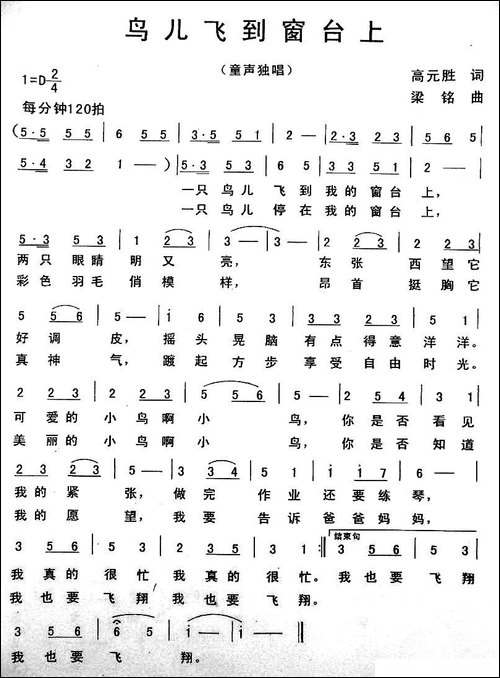 鸟儿飞到窗台上
（童声独唱）
1=D 2/4
高元胜 词
每分钟120拍
梁铭 曲
(5·5 55 | 6 55 | 3·5 51 | 2 — | 2·3 23 | 5 6 5 |
5·4 32 | 1 — ) | 5·3 55 | 6 5 6 5 | 33 51 | 2 — |
一只 鸟儿 飞到 我的 窗台 上，
一只 鸟儿 停在 我的 窗台 上，
5·3 5 5 | 1 23 | 3 — | 3 — | 2 23 | 6 56 |
两只 眼睛 明 又 亮， 东张 西望它
彩色 羽毛 俏 模 样， 昂首 挺胸它
5 56 | 5 — | i 65 | 3 5 | 3 2 3 | 5 1 |
好 调 皮， 摇头 晃脑 有点 得意 洋洋。
真 神 气， 踱起 方步 享受 自由 时光。
2 2 3 | 2 1 2 | 5 56 | 5 — | 2 5 4 | 3 1 |
可爱的 小鸟啊 小 鸟， 你是否 看见
美丽的 小鸟啊 小 鸟， 你是否 知道
2 3 2 3 | 5 — | 3 34 | 5 1 | i i 7 | 6 — |
我的 紧 张， 做完 作业 还要练 琴，
我的 愿 望， 我要 告诉 爸爸妈 妈，
结束句
3 56 | 5 3 | 2 35 | 1 — :‖ 3 56 | 5 6 |
我 真的 很忙 我 真的 很忙。 我 也要 飞翔
我 也要 飞翔 我 也要 飞翔。
3 56 | 6 5 | i — | i — ‖
我 也要 飞 翔。